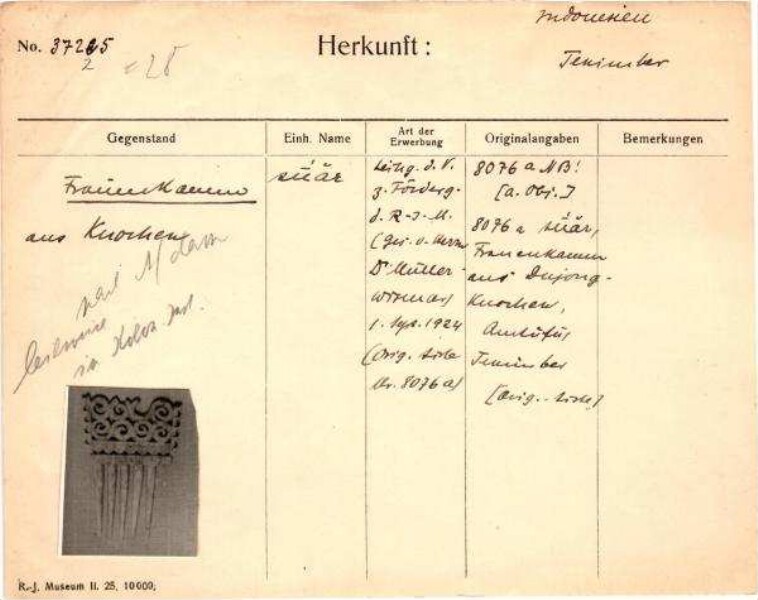 No. 37225
2
=28
Herkunft:
Indonesien
Tenimber
Gegenstand
Einh. Name
Art der Erwerbung
Originalangaben
Bemerkungen
Frauenkamm
aus Knochen
nach A'dam
leihweise
in Kolon. Inst.
süär
Leihg. d. V.
z. Förderg.
d. R-J-M.
(Ges. v. Herrn
Dr Müller-
Wismar)
1. Sept. 1924
(Orig. Liste
Nr. 8076 a)
8076 a NB!
[a. Obj.]
8076 a süär,
Frauenkamm
aus Dujong-
Knochen,
Amtufu,
Tenimber
[Orig.-Liste]
R.-J. Museum II. 25, 10000;